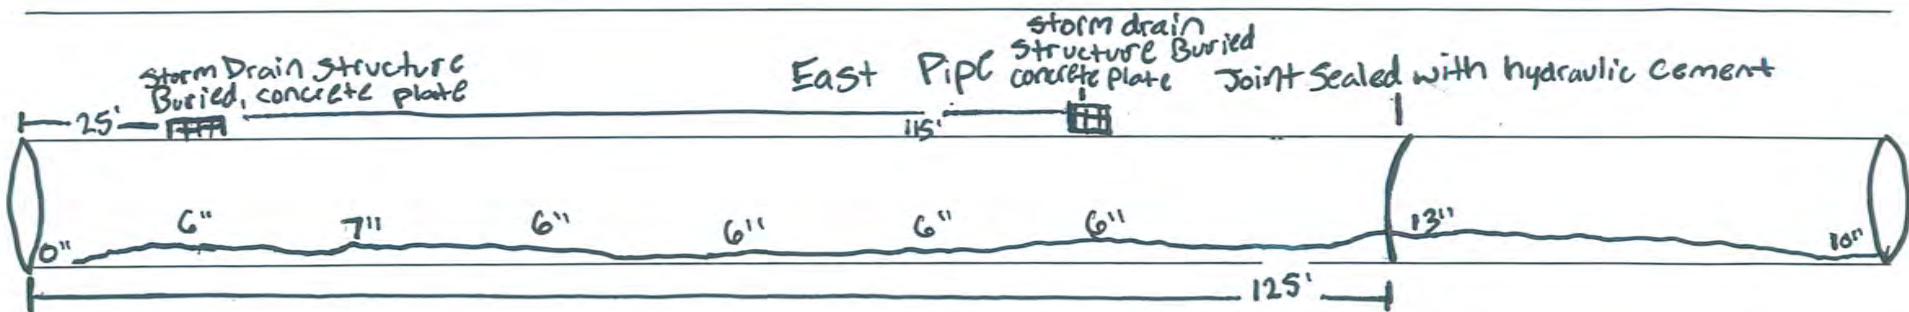 Storm Drain Structure
Buried, concrete plate
East Pipe
Storm drain
Structure Buried
concrete plate
Joint Sealed with hydraulic cement
25'
115'
0"
6"
7"
6"
6"
6"
6"
13"
10"
125'